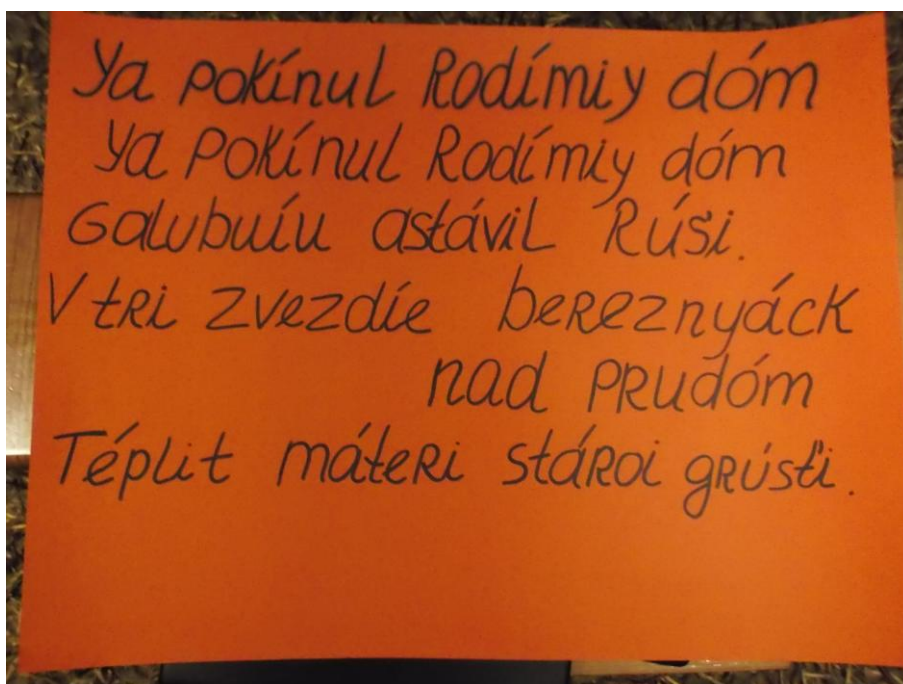 Ya pokínul Rodímiy dóm
Ya pokínul Rodímiy dóm
Galubuíu astávil Rúśi.
V tri zvezdíe bereznyáck
nad prudóm
Téplit máteri stároi grúśti.